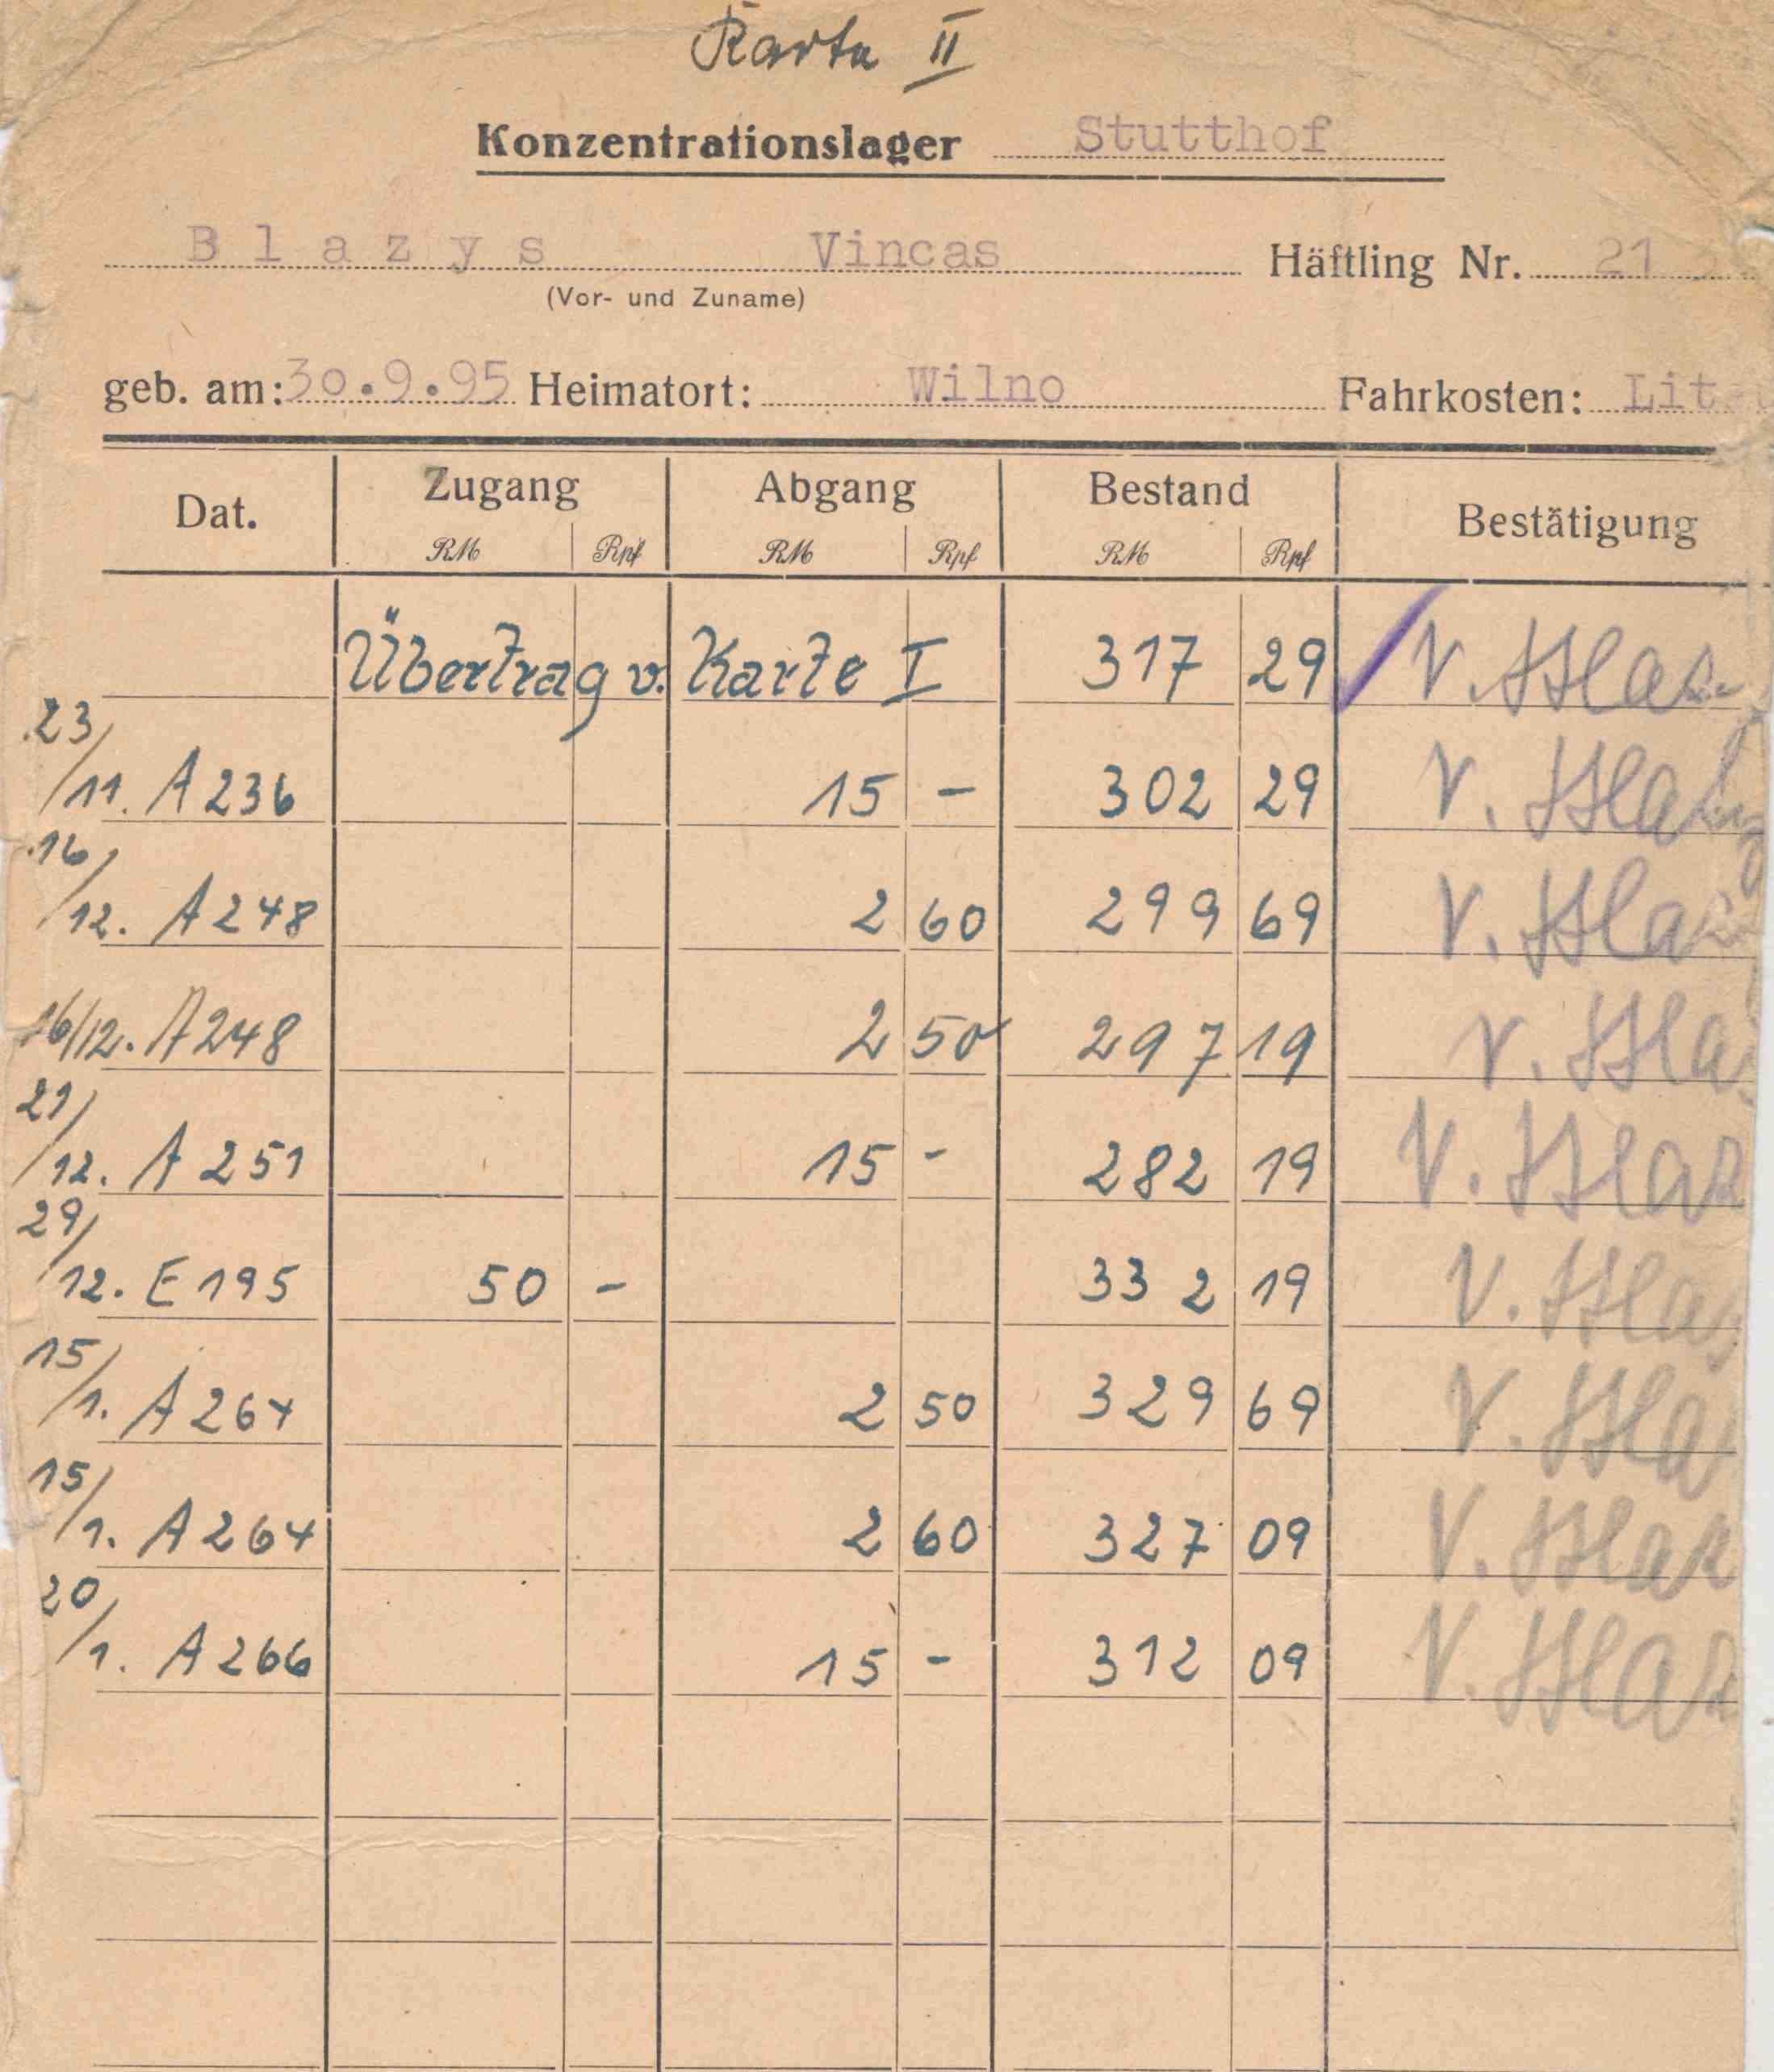 Karte II
Konzentrationslager Stutthof
Blazys Vincas Häftling Nr. 21
(Vor- und Zuname)
geb. am: 30.9.95 Heimatort: Wilno Fahrkosten: Lit
Dat. Zugang Abgang Bestand Bestätigung
RM Rpf RM Rpf RM Rpf
Übertrag v. Karte I 317 29 V. Blaz
23/11. A 236 15 - 302 29 V. Blaz
16/12. A 248 2 60 299 69 V. Blaz
16/12. A 248 2 50 297 19 V. Bla
21/12. A 251 15 - 282 19 V. Blaz
29/12. E 195 50 - 332 19 V. Blaz
15/1. A 264 2 50 329 69 V. Bla
15/1. A 264 2 60 327 09 V. Blaz
20/1. A 266 15 - 312 09 V. Blaz